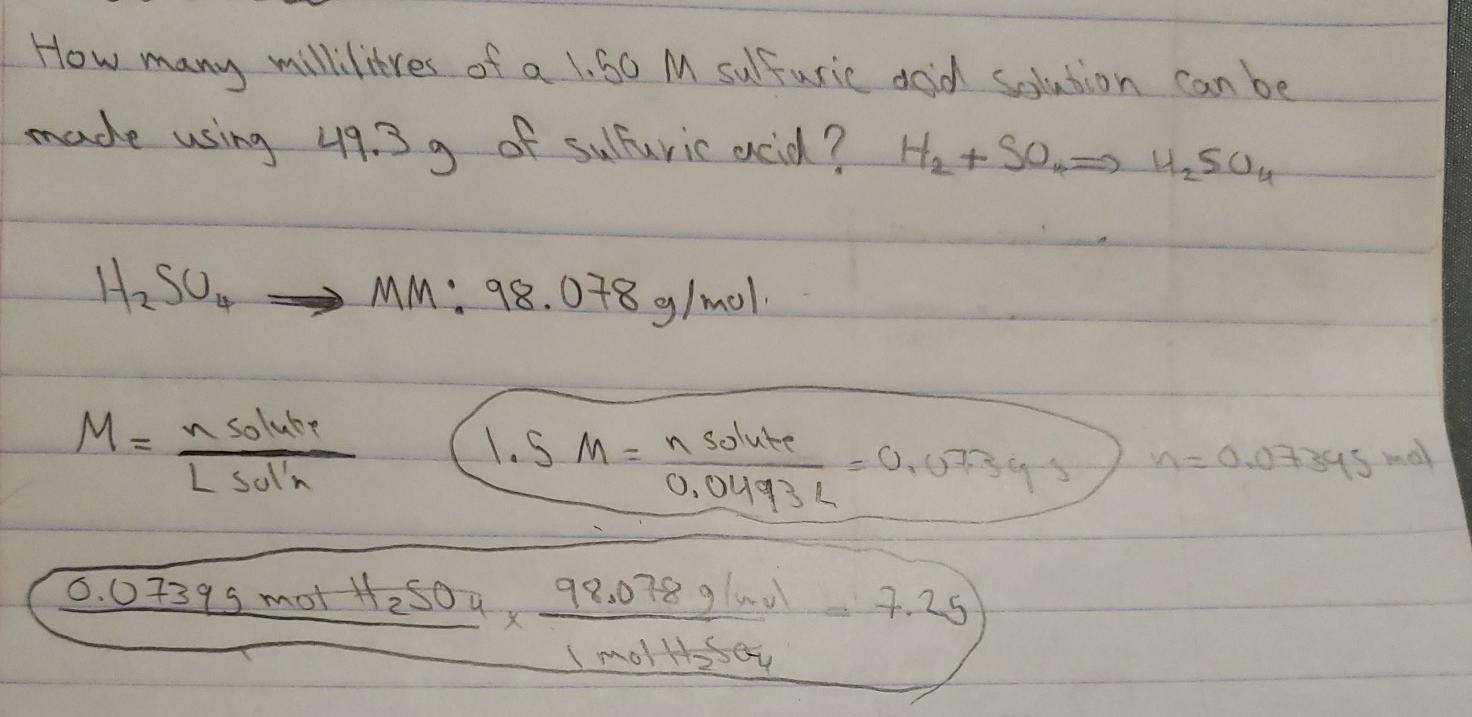 How many millilitres of a 1.50 M sulfuric acid solution can be
made using 49.3 g of sulfuric acid? H₂ + SO₄ ⇒ H₂SO₄
H₂SO₄ → MM: 98.078 g/mol.
M = n solute / L sol'n   1.5 M = n solute / 0.0493 L = 0.07395   n = 0.07395 mol
0.07395 mol H₂SO₄ × 98.078 g/mol / 1 mol H₂SO₄ = 7.25